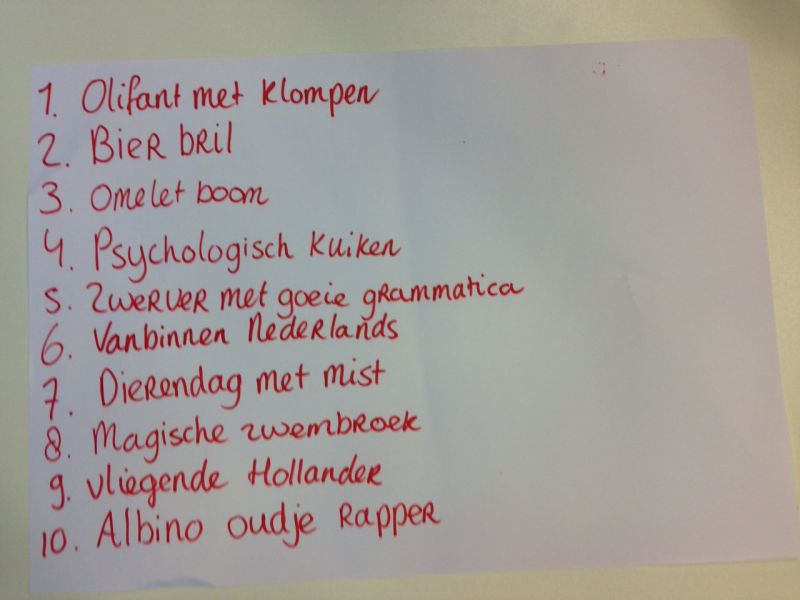 1. Olifant met klompen
2. Bier bril
3. Omelet boom
4. Psychologisch kuiken
5. Zwerver met goeie grammatica
6. Vanbinnen Nederlands
7. Dierendag met mist
8. Magische zwembroek
9. vliegende Hollander
10. Albino oudje rapper